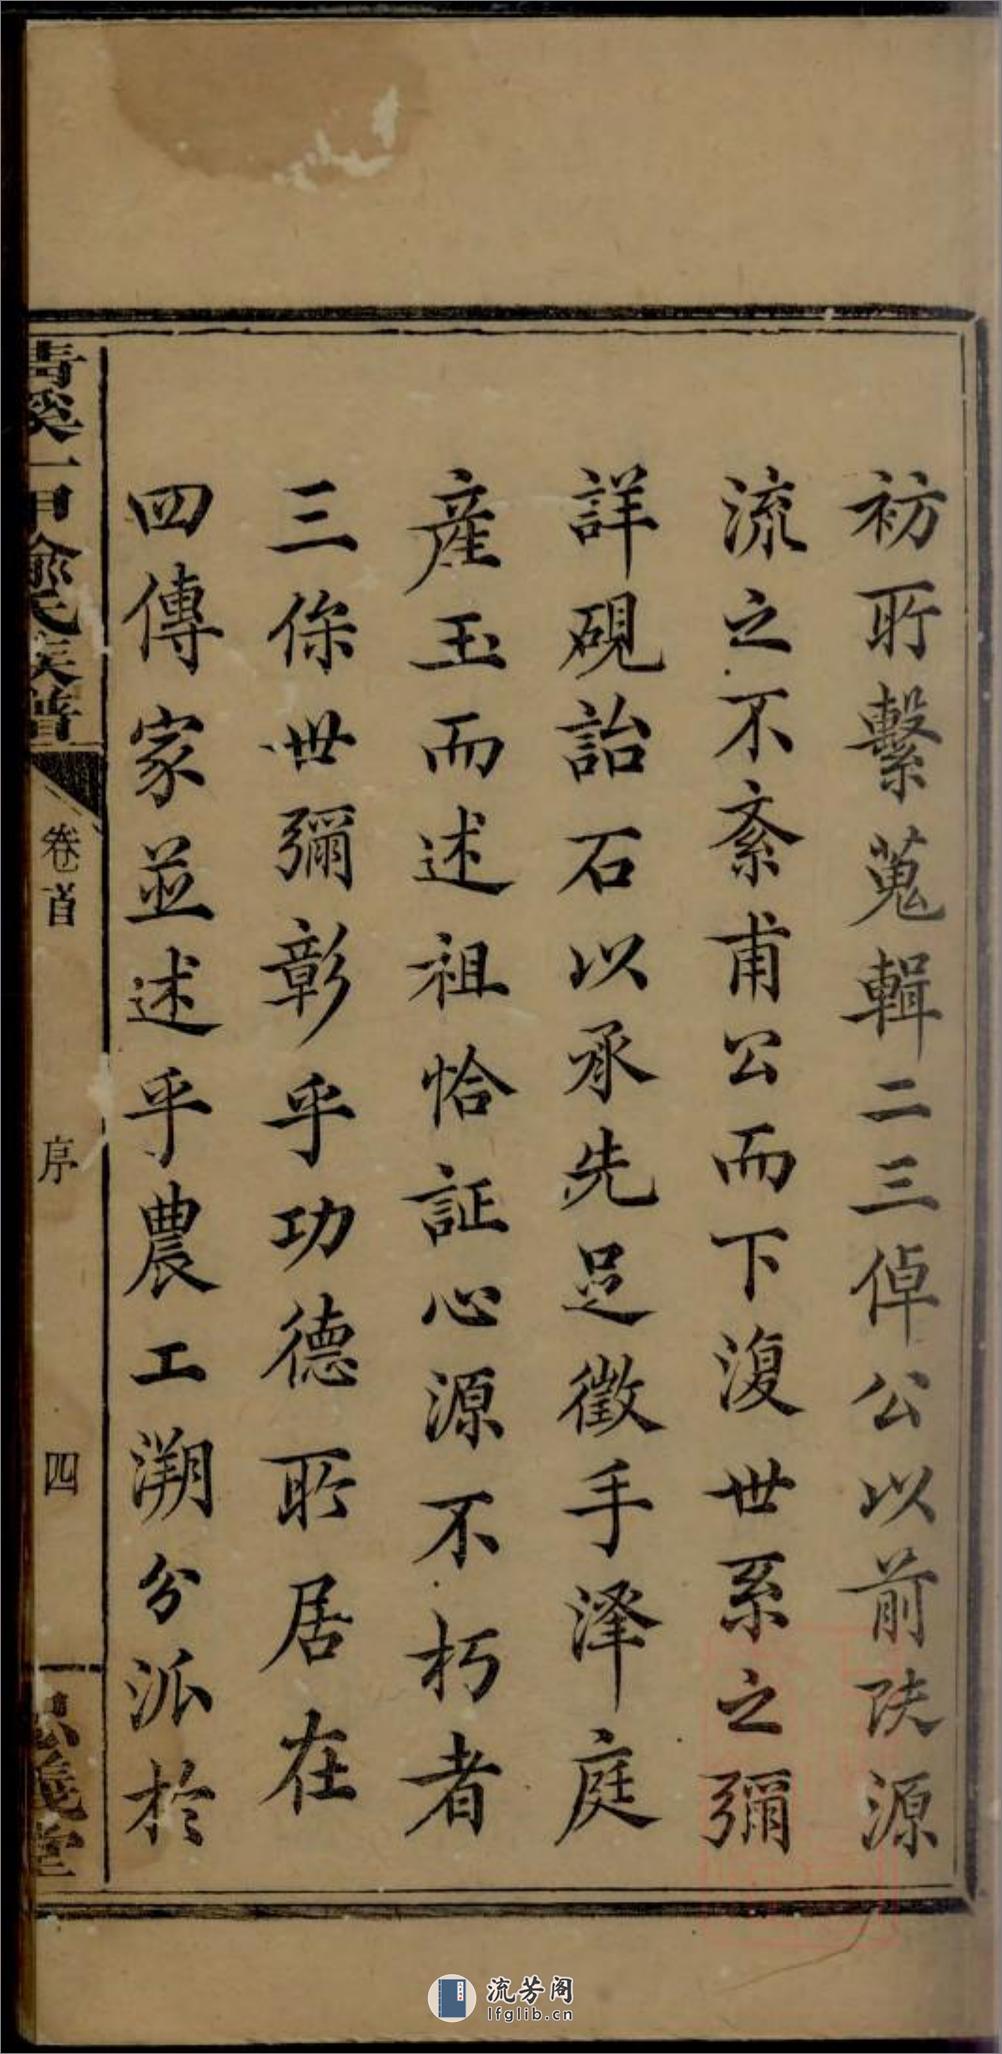 初所繫蒐輯二三倬公以前陝源
流之不紊甫公而下復世系之彌
詳硯詒石以承先足徵手澤庭
産玉而述祖恰証心源不朽者
三條世彌彰乎功德所居在
四傳家並述乎農工溯分派於
青溪一甲俞氏族譜
卷首
序
四
義堂
流芳阁
lfglib.cn